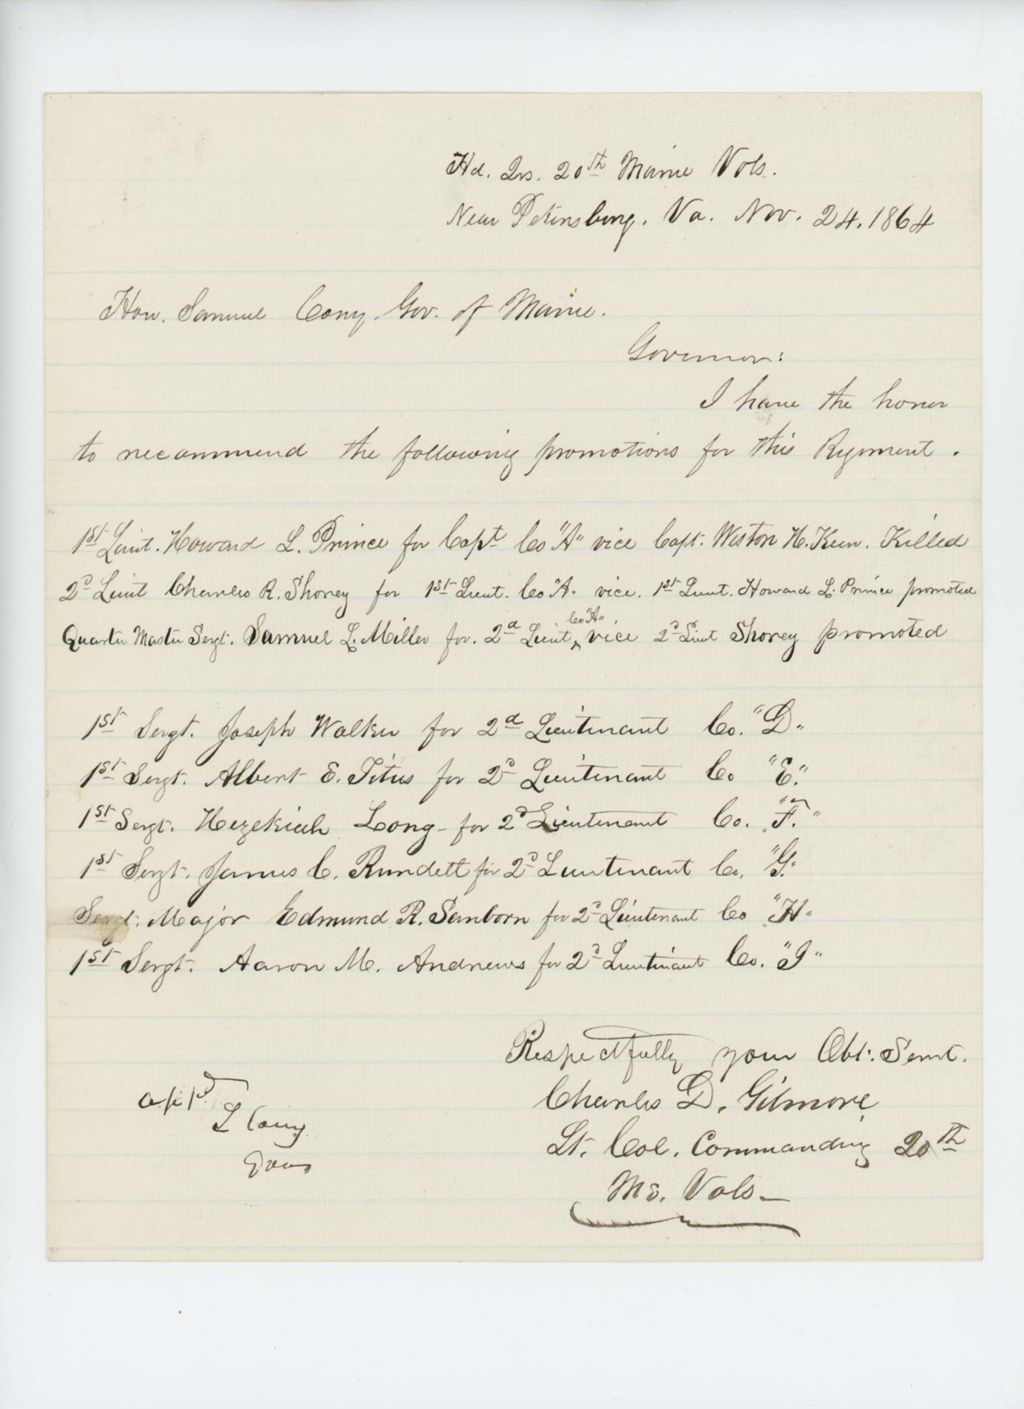 Hd. Qrs. 20th Maine Vols.
Near Petersburg, Va. Nov. 24, 1864
Hon. Samuel Cony Gov. of Maine.
Governor:
I have the honor
to recommend the following promotions for this Regiment.
1st Lieut. Howard L. Prince for Capt Co "A" vice Capt. Weston H. Keen. Killed
2d Lieut Charles R. Shorey for 1st Lieut. Co "A" vice. 1st Lieut. Howard L. Prince promoted
Quarter Master Sergt. Samuel L. Miller for. 2d Lieut Co "A" vice 2d Lieut Shorey promoted
1st Sergt. Joseph Walker for 2d Lieutenant Co. "D"
1st Sergt. Albert E. Titus for 2d Lieutenant Co "E."
1st Sergt. Hezekiah Long for 2d Lieutenant Co. "F."
1st Sergt. James C. Rundlett for 2d Lieutenant Co, "G"
Sergt. Major Edmund R. Sanborn for 2d Lieutenant Co "H"
1st Sergt. Aaron M. Andrews for 2d Lieutenant Co. "I"
Respectfully your Obt. Servt.
Charles D. Gilmore
Lt. Col. Commanding 20th
Me. Vols
appd
S Cony